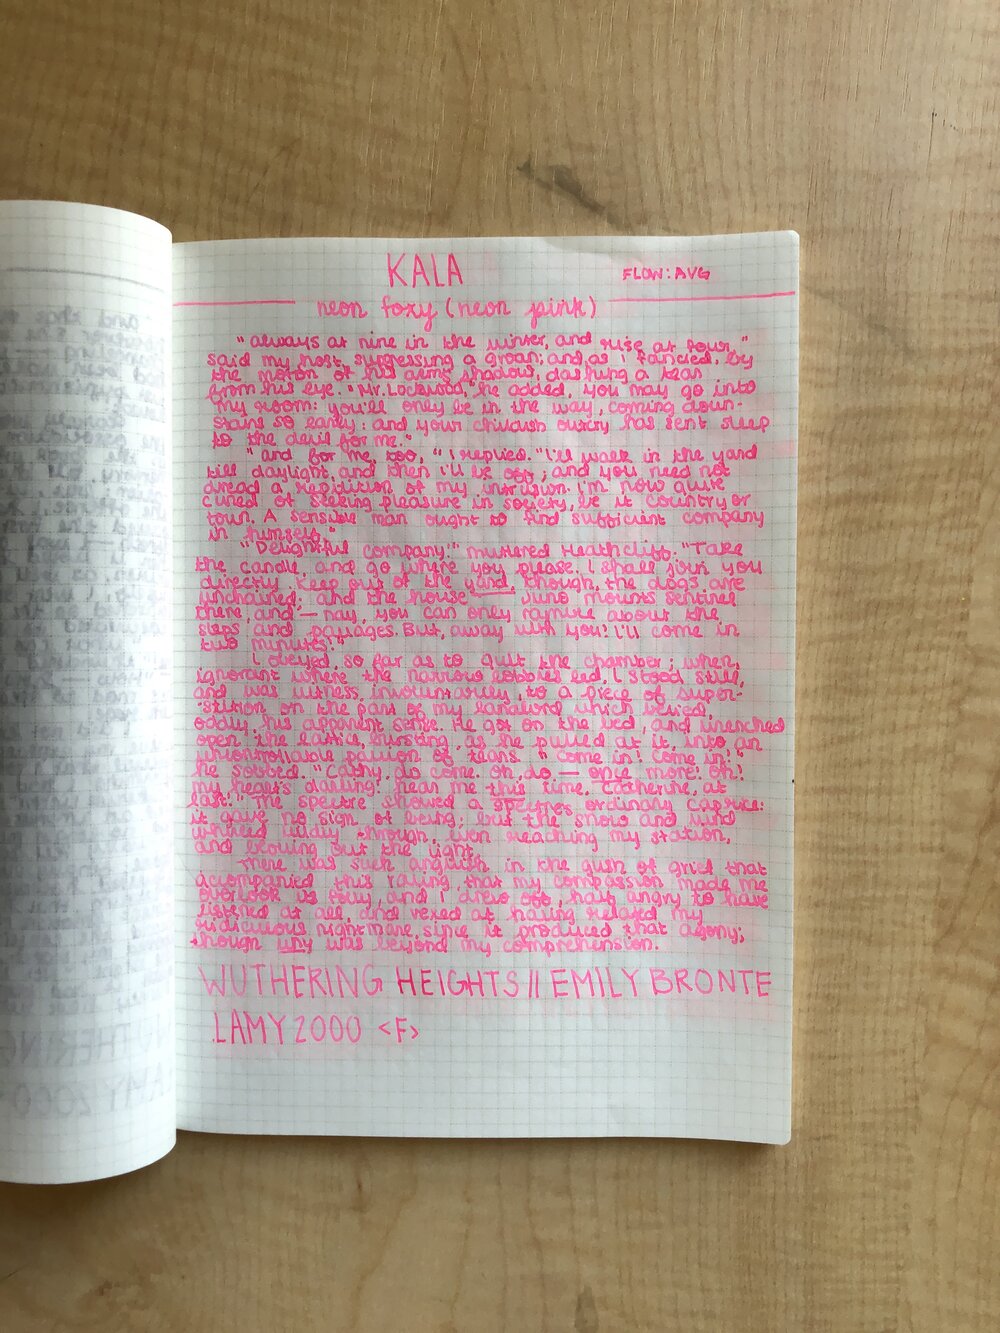 KALA
FLOW: AVG
neon foxy (neon pink)
"always at nine in the winter, and rise at four,"
said my host, suppressing a groan; and, as I fancied, by
the motion of his arm's shadow, dashing a tear
from his eye. "Mr. Lockwood," he added, you may go into
my room: you'll only be in the way, coming down-
stairs so early: and your childish outcry has sent sleep
to the devil for me."
"and for me, too," I replied. "I'll walk in the yard
till daylight, and then i'll be off, and you need not
dread a repitition of my intrusion. I'm now quite
cured of seeking pleasure in society, be it country or
town. A sensible man ought to find sufficient company
in himself."
"Delightful company!" muttered Heathcliff. "Take
the candle, and go where you please. I shall join you
directly. Keep out of the yard, though, the dogs are
unchained; and the house — Juno mounts sentinel
there, and — nay, you can only ramble about the
steps and passages. But, away with you! I'll come in
two minutes!"
I obeyed, so far as to quit the chamber; when,
ignorant where the narrow lobbies led, I stood still,
and was witness, involuntarily, to a piece of super-
stition on the part of my landlord which belied,
oddly, his apparent sense. He got on the bed, and wrenched
open the lattice, bursting, as he pulled at it, into an
uncontrollable passion of tears. "Come in! come in!"
he sobbed. "Cathy, do come. Oh, do — once more! Oh!
my heart's darling! hear me this time, Catherine, at
last!" The spectre showed a spectre's ordinary caprice:
it gave no sign of being; but the snow and wind
whirled wildly through, even reaching my station,
and blowing out the light.
There was such anguish in the gush of grief that
accompanied this raving, that my compassion made me
overlook its folly, and I drew off, half angry to have
listened at all, and vexed at having related my
ridiculous nightmare, since it produced that agony;
though why was beyond my comprehension.
WUTHERING HEIGHTS // EMILY BRONTE
LAMY 2000 <F>